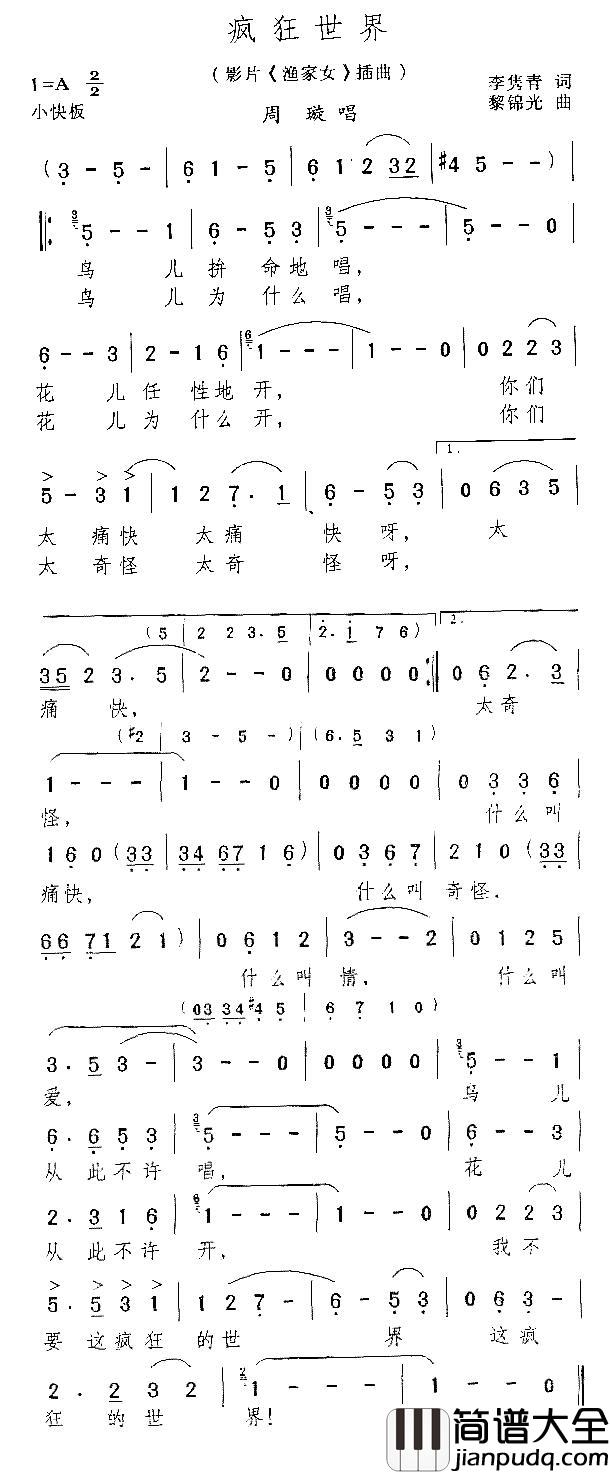 疯狂世界
（影片《渔家女》插曲）
1=A 2/2
李隽青 词
小快板
黎锦光 曲
周璇唱
(3 - 5 - | 6 1 - 5 | 6 1 2 32 | #4 5 - - )
3 5 - - 1 | 6 - 5 3 | 3 5 - - - | 5 - - 0
鸟 儿拚 命地唱，
鸟 儿为 什么唱，
6 - - 3 | 2 - 1 6 | 6 1 - - - | 1 - - 0 | 0 2 2 3
花 儿任 性地开， 你们
花 儿为 什么开， 你们
5 - 3 1 | 1 2 7 . 1 | 6 - 5 3 | 0 6 3 5
1.
太 痛快 太痛 快呀， 太
太 奇怪 太奇 怪呀，
(5 | 2 2 3 . 5 | 2 . 1 7 6)
2.
35 2 3 . 5 | 2 - - 0 | 0 0 0 0 :| 0 6 2 . 3
痛 快， 太奇
(#2 | 3 - 5 - ) | (6 . 5 3 1)
1 - - - | 1 - - 0 | 0 0 0 0 | 0 3 3 6
怪， 什么叫
1 6 0 (33 | 34 67 1 6) | 0 3 6 7 | 2 1 0 (33
痛快， 什么叫 奇怪.
66 71 2 1 ) | 0 6 1 2 | 3 - - 2 | 0 1 2 5
什么叫 情， 什么叫
(03 34 #4 5 | 6 7 1 0)
3 . 5 3 - | 3 - - 0 | 0 0 0 0 | 3 5 - - 1
爱， 鸟 儿
6 . 6 5 3 | 3 5 - - - | 5 - - 0 | 6 - - 3
从 此不许 唱， 花 儿
2 . 3 1 6 | 6 1 - - - | 1 - - 0 | 0 2 2 3
从 此不许 开， 我不
5 . 5 3 1 | 1 2 7 - | 6 - 5 3 | 0 6 3 -
要 这疯狂 的世 界 这疯
2 . 2 3 2 | 2 1 - - - | 1 - - 0
狂 的世 界！
简谱大全
jianpudq.com